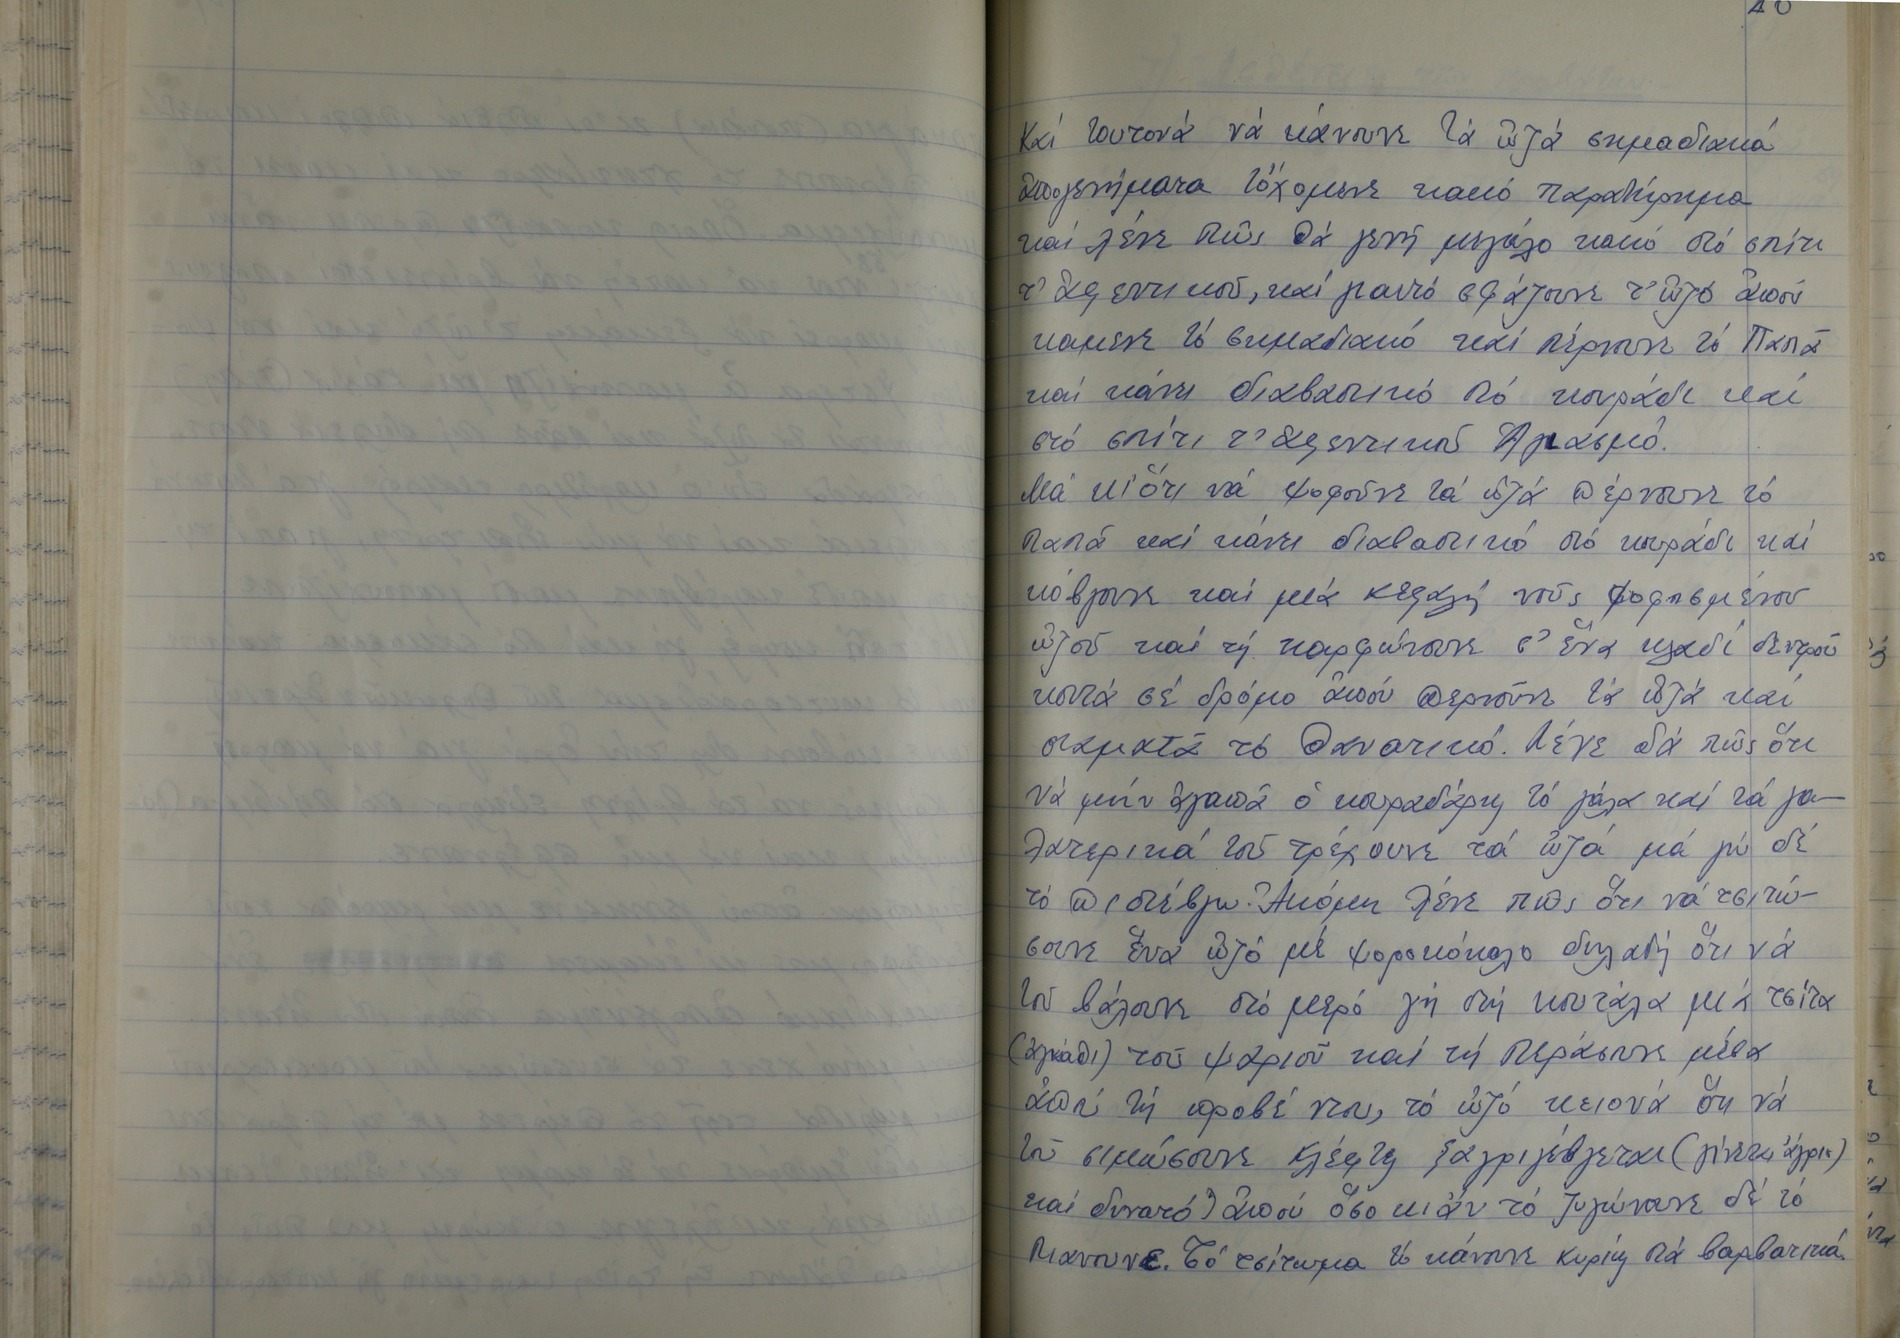 Καί τουτονά νά κάνουνε τά ὠζά σημαδιακά
ἀπογεννήματα τὄχομενε κακό παρατήρημα
καί λένε πῶς θά γενῆ μεγάλο κακό στό σπίτι
τ' ἀφεντικοῦ, καί γιαυτό σφάζουνε τ' ὠζό ἀπού
καμενε τό σημαδιακό καί πέρνουνε τό Παπᾶ
καί κάνει διαβαστικό στό κουράδι καί
στό σπίτι τ' ἀφεντικοῦ Ἁγιασμό.
Μά κι' ὅτι νά ψοφοῦνε τά ὠζά πέρνουνε τό
παπᾶ καί κάνει διαβαστικό στό κουράδι καί
κόβγουνε καί μιά κεφαλή νούς ψοφισμένου
ὠζοῦ καί τή καρφώνουνε σ' ἕνα κλαδί δεντροῦ
κοντά σέ δρόμο ἀπού περνοῦνε τά ὠζά καί
σταματᾶ τό θανατικό. Λένε δά πῶς ὅτι
νά μήν ἀγαπᾶ ὁ κουραδάρης τό γάλα καί τά γα-
λατερικά τοῦ τρέχουνε τά ὠζά μά γώ δέ
τό πιστέβγω. Ἀκόμη λένε πῶς ὅτι νά τσιτώ-
σουνε ἕνα ὠζό μέ ψαροκόκαλο δηλαδή ὅτι νά
τοῦ βάλουνε στό μερό γή στή κουτάλα μιά τσίτα
(ἀγκάθι) τοῦ ψαριοῦ καί τή περάσουνε μέσα
ἀπού τή προβέ ντου, τό ὠζό κειονά ὅτι νά
τοῦ σιμώσουνε κλέφτες ξαγριγέβγεται (γίνεται ἄγριο)
καί δυνατό) ἀπού ὅσο κιἄν τό ζυγώνουνε δέ τό
πιανουνε. Τό τσίτωμα τό κάνουνε κυρίως στά βαρβατικά.